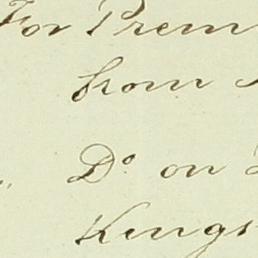 For Prem
from
Do on
Kings